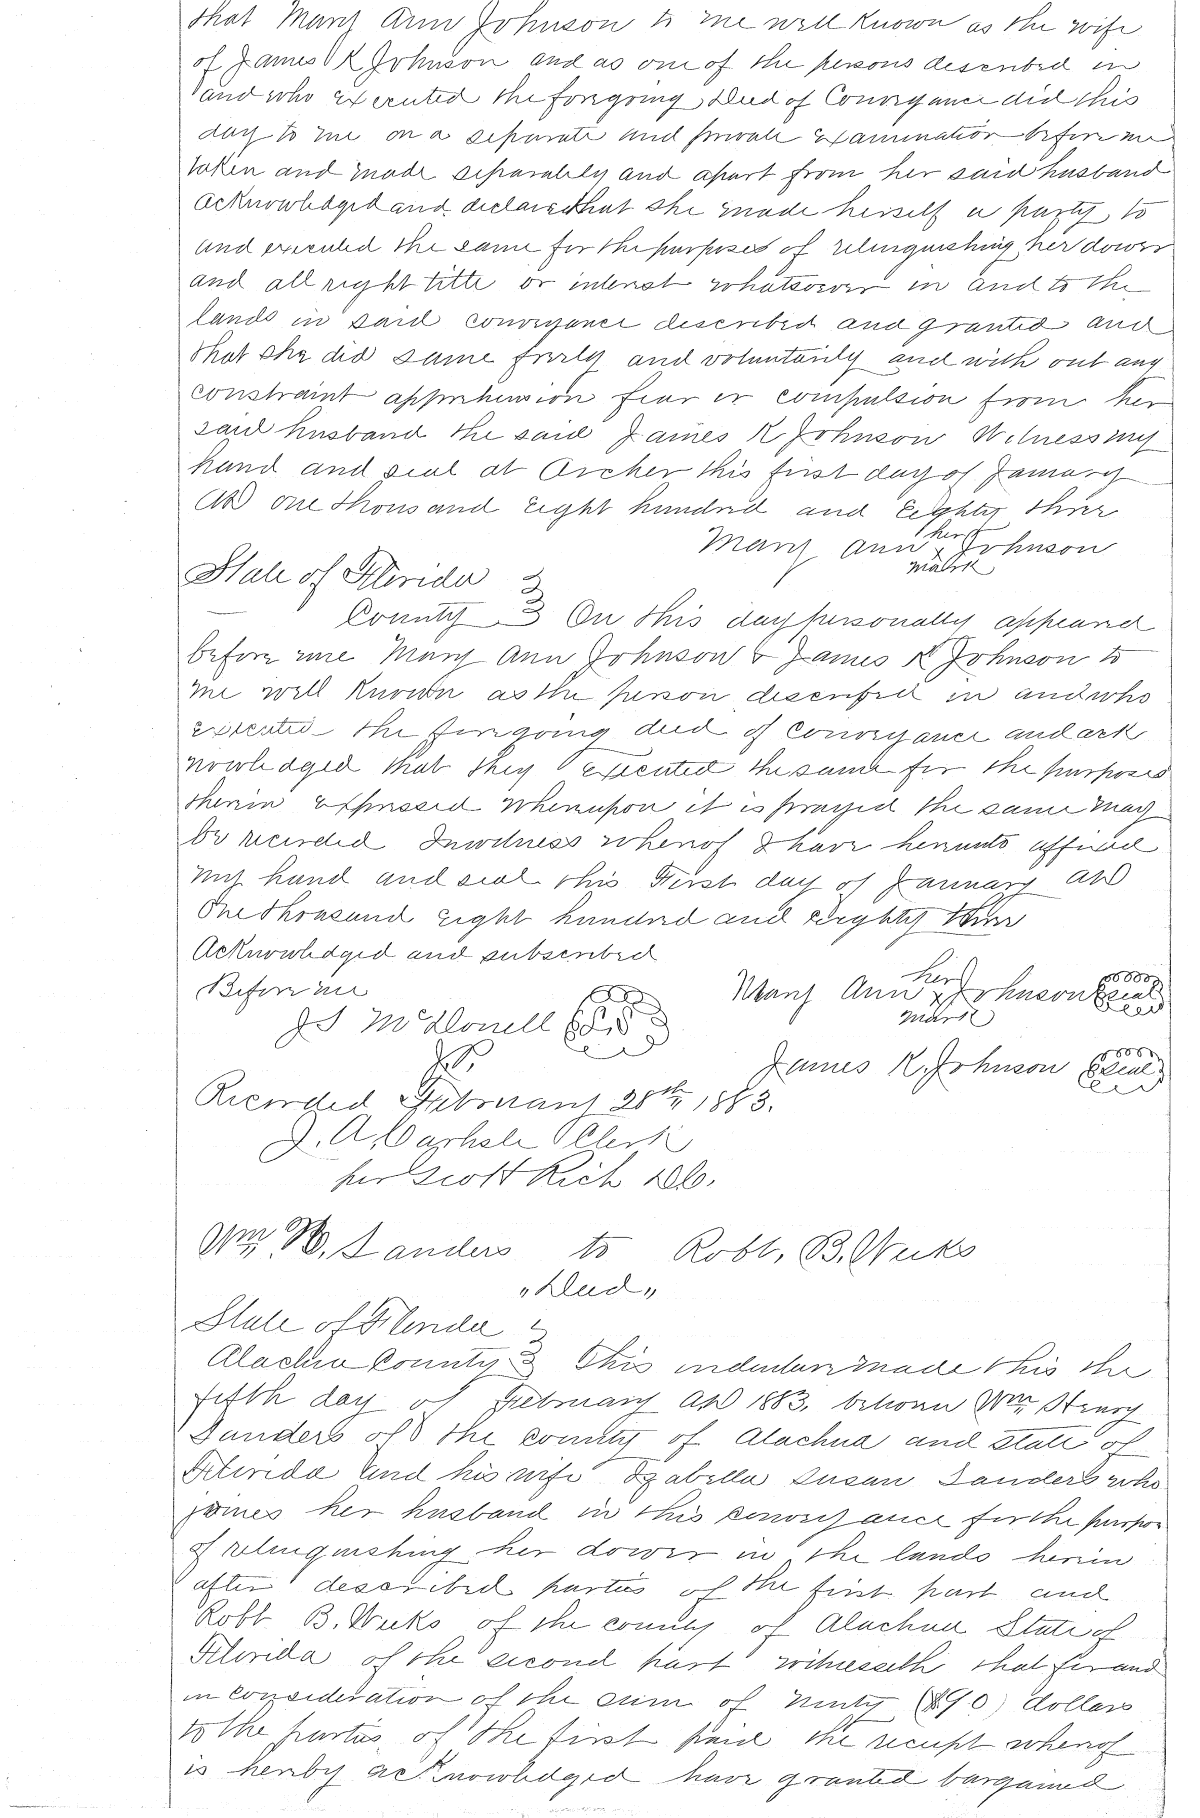 that Mary Ann Johnson to me well Known as the wife
of James K Johnson and as one of the persons described in
and who executed the foregoing Deed of Conveyance did this
day to me on a separate and private examination before me
taken and made separately and apart from her said husband
acknowledged and declared that she made herself a party to
and executed the same for the purposes of relinquishing her dower
and all right title or interest whatsoever in and to the
lands in said conveyance described and granted and
that she did same freely and voluntarily and with out any
constraint apprehension fear or compulsion from her
said husband the said James K Johnson Witness my
hand and seal at Archer this first day of January
AD one thousand eight hundred and Eighty three
her
Mary Ann x Johnson
mark
State of Florida }
County } On this day personally appeared
before me Mary Ann Johnson & James K Johnson to
me well Known as the person described in and who
executed the foregoing deed of Conveyance and ack
nowledged that they executed the same for the purposes
therein expressed whereupon it is prayed the same may
be recorded In witness whereof I have hereunto affixed
my hand and seal this First day of January AD
One thousand eight hundred and eighty three
Acknowledged and subscribed
Before me
her
Mary Ann x Johnson seal
mark
J S McDonell LS
JP.
James K. Johnson seal
Recorded February 28th 1883.
J. A. Carlisle Clerk
per Scott Rich DC.
Wm H. Sanders to Robt. B. Weeks
"Deed"
State of Florida }
Alachua County } This indenture made this the
fifth day of February AD 1883. between Wm Henry
Sanders of the county of Alachua and state of
Florida and his wife Izabella Susan Sanders who
joines her husband in this conveyance for the purpose
of relinquishing her dower in the lands herein
after described parties of the first part and
Robt B. Weeks of the county of Alachua State of
Florida of the second part witnesseth that for and
in consideration of the sum of ninty ($90) dollars
to the parties of the first paid the receipt whereof
is hereby acknowledged have granted bargained